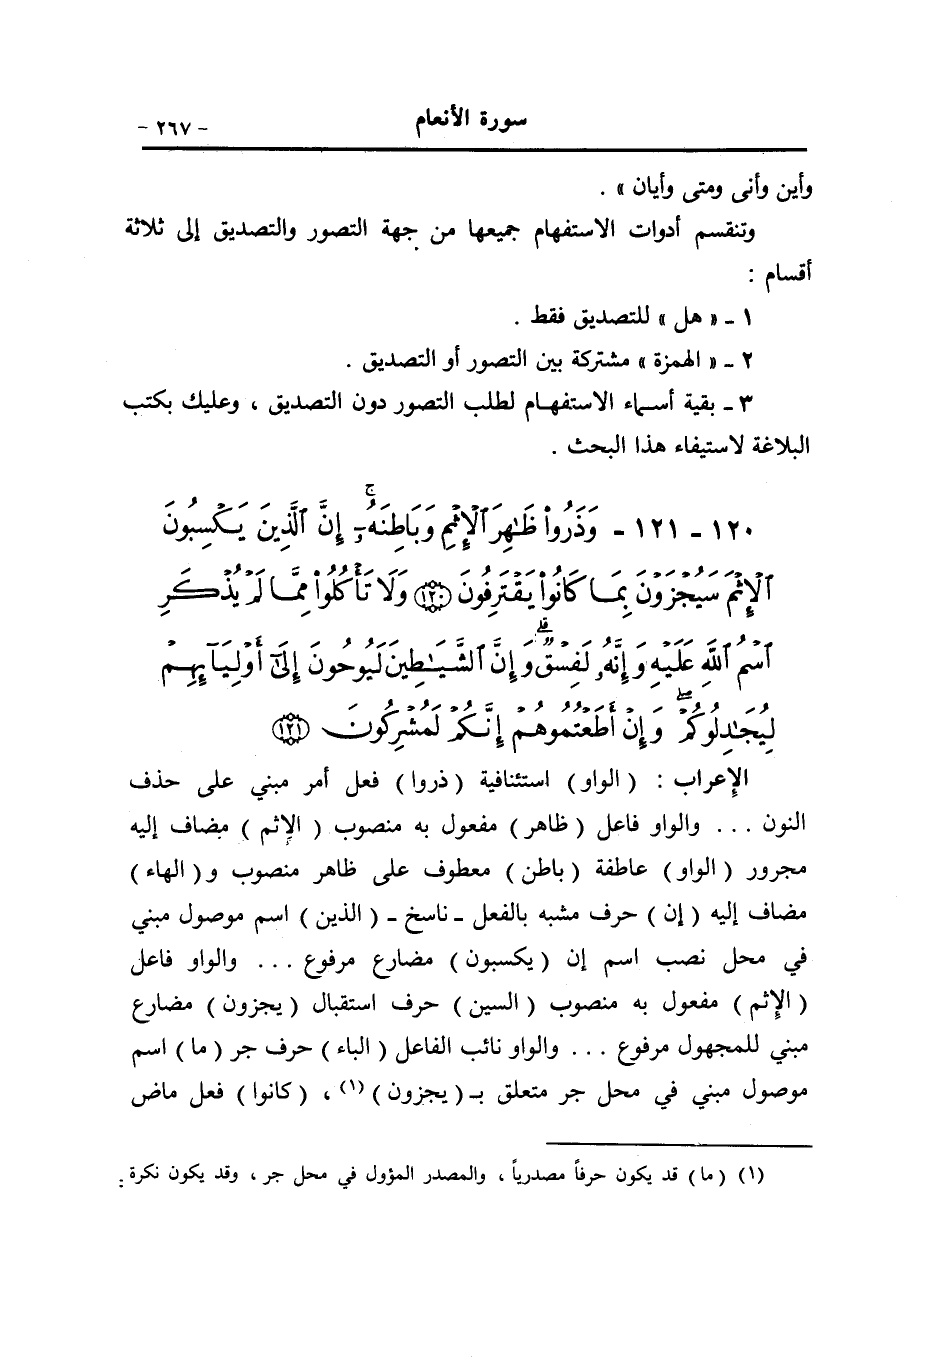 سورة الأنعام
- ٢٦٧ -
وأين وأنى ومتى وأيان » .
وتنقسم أدوات الاستفهام جميعها من جهة التصور والتصديق إلى ثلاثة
أقسام :
١ ـ « هل » للتصديق فقط .
٢ ـ « الهمزة » مشتركة بين التصور أو التصديق .
٣ ـ بقية أسماء الاستفهام لطلب التصور دون التصديق ، وعليك بكتب
البلاغة لاستيفاء هذا البحث .
١٢٠ ـ ١٢١ ـ وَذَرُوا۟ ظَٰهِرَ ٱلْإِثْمِ وَبَاطِنَهُۥٓ ۚ إِنَّ ٱلَّذِينَ يَكْسِبُونَ
ٱلْإِثْمَ سَيُجْزَوْنَ بِمَا كَانُوا۟ يَقْتَرِفُونَ ﴿١٢٠﴾ وَلَا تَأْكُلُوا۟ مِمَّا لَمْ يُذْكَرِ
ٱسْمُ ٱللَّهِ عَلَيْهِ وَإِنَّهُۥ لَفِسْقٌ ۗ وَإِنَّ ٱلشَّيَٰطِينَ لَيُوحُونَ إِلَىٰٓ أَوْلِيَآئِهِمْ
لِيُجَٰدِلُوكُمْ ۖ وَإِنْ أَطَعْتُمُوهُمْ إِنَّكُمْ لَمُشْرِكُونَ ﴿١٢١﴾
الإعراب : ( الواو ) استئنافية ( ذروا ) فعل أمر مبني على حذف
النون ... والواو فاعل ( ظاهر ) مفعول به منصوب ( الإثم ) مضاف إليه
مجرور ( الواو ) عاطفة ( باطن ) معطوف على ظاهر منصوب و( الهاء )
مضاف إليه ( إن ) حرف مشبه بالفعل ـ ناسخ ـ ( الذين ) اسم موصول مبني
في محل نصب اسم إن ( يكسبون ) مضارع مرفوع ... والواو فاعل
( الإثم ) مفعول به منصوب ( السين ) حرف استقبال ( يجزون ) مضارع
مبني للمجهول مرفوع ... والواو نائب الفاعل ( الباء ) حرف جر ( ما ) اسم
موصول مبني في محل جر متعلق بـ ( يجزون )(١) ، ( كانوا ) فعل ماض
(١) ( ما ) قد يكون حرفاً مصدرياً ، والمصدر المؤول في محل جر ، وقد يكون نكرة :